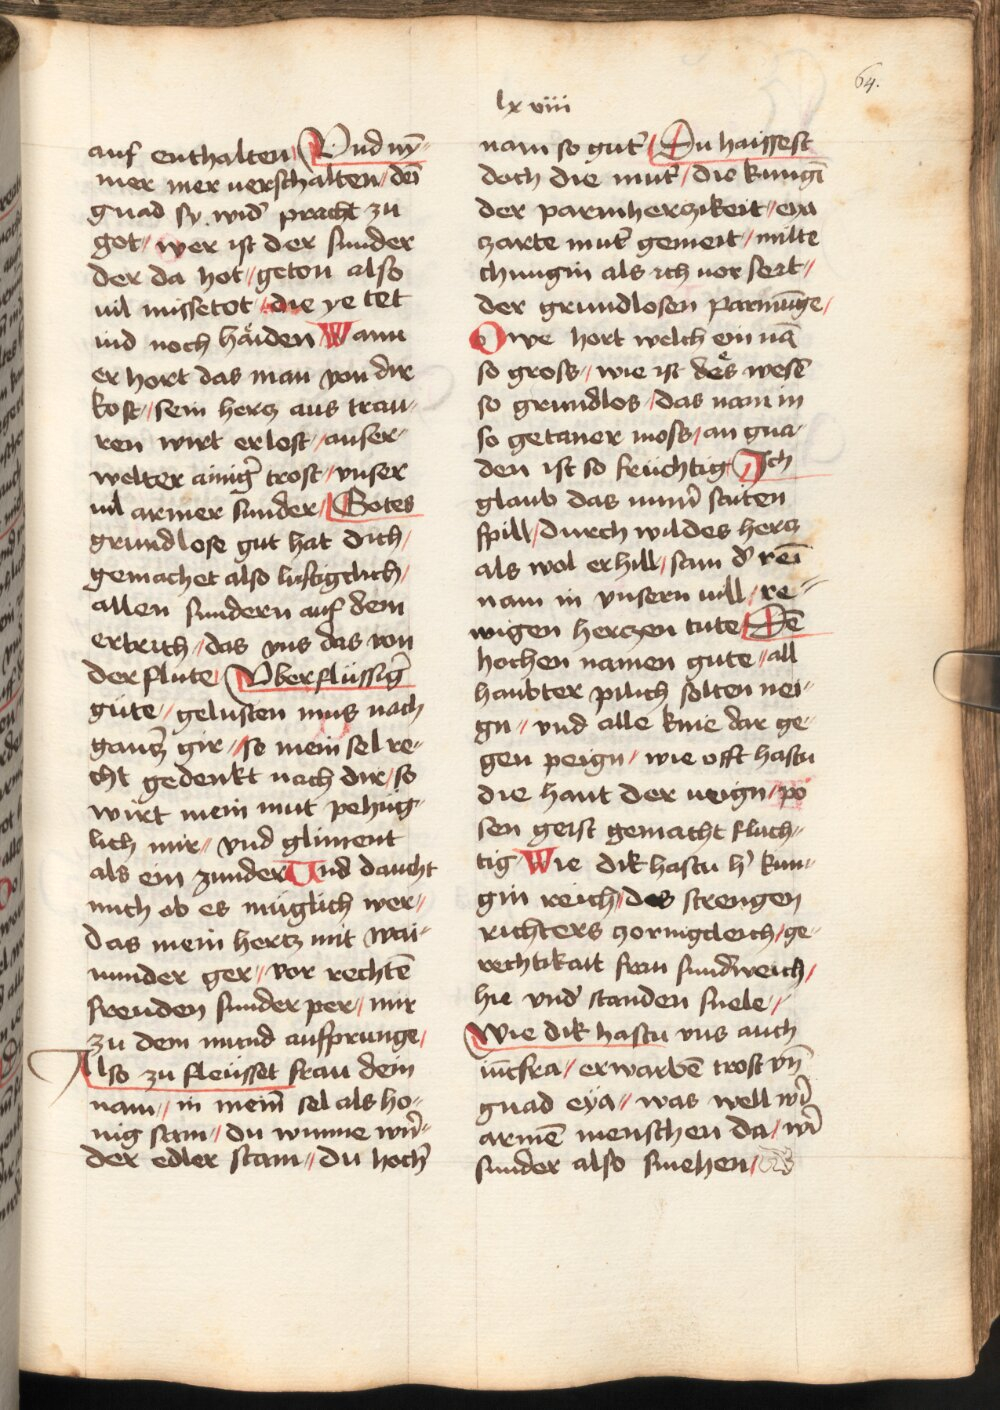 64.
lxviii
auf enthalten / Vnd ny̅-
mer mer uerschalten / dei̅
gnad sy wid' pracht zu
got / wer ist der sunder
der da hot / geton also
uil missetot / die ye tet
iud noch häiden Wann
er hort das man von dir
kost / sein hercz aus trau-
ren wirt erlost / auser-
welter ainig' trost / vnser
uil armer sunder / Gotes
grundlose gut hat dich /
gemachet also lustigclich /
allen sundern auf dem
ertrich / das vns das von
der flute / Vberflüssig'
güte / gelusten mus nach
gancz gir / so mein sel re-
cht gedenkt nach dir / so
wirt mein mut pehüg-
lich mir / vnd gliment
als ein zunder Vnd daucht
mich ob es müglich wer /
das mein hertz mit wai-
nunder ger / vor rechte̅
freuden sunder per / mir
zu dem mund aufsprunge /
Also zu fleüsset frau dein
nam / in mein̅ sel als ho-
nig sam / du wunne wu̅'-
der edler stam / du hoch'
nam so gut' / Du haissest
doch die mut' / die kungi̅
der parmherczikeit / eya
zarte mut' gemeit / milte
chungin als ich vor seit /
der grundlosen parmu̅ge /
Owe hort welch ein na̅
so gross / wie ist des wese̅
so grundlos / das nam in
so getaner moss / an gna-
den ist so früchtig Ich
glaub das num̅ saiten
spill / durch wildes hercz
als wol erhill / sam d' rei̅
nam in vnsern uill / re-
wigen herczen tute / De̅
hochen namen gute / all
haubter pilich solten nei-
gn / vnd alle knie dar ge-
gen peign / wie offt hastu
die haut der ueign / po
sen geist gemacht fluch-
tig Wie dik hastu h' kun-
gin reich / des strengen
richters zornigcleich / ge-
rechtikait frau sund'weich /
hie vnd' standen snele /
Wie dik hastu vns auch
iu̅cfra / erwarbe̅ trost vn̅
gnad eÿa / was well wi'
arme̅ menschen da / wi'
sunder also snehen /